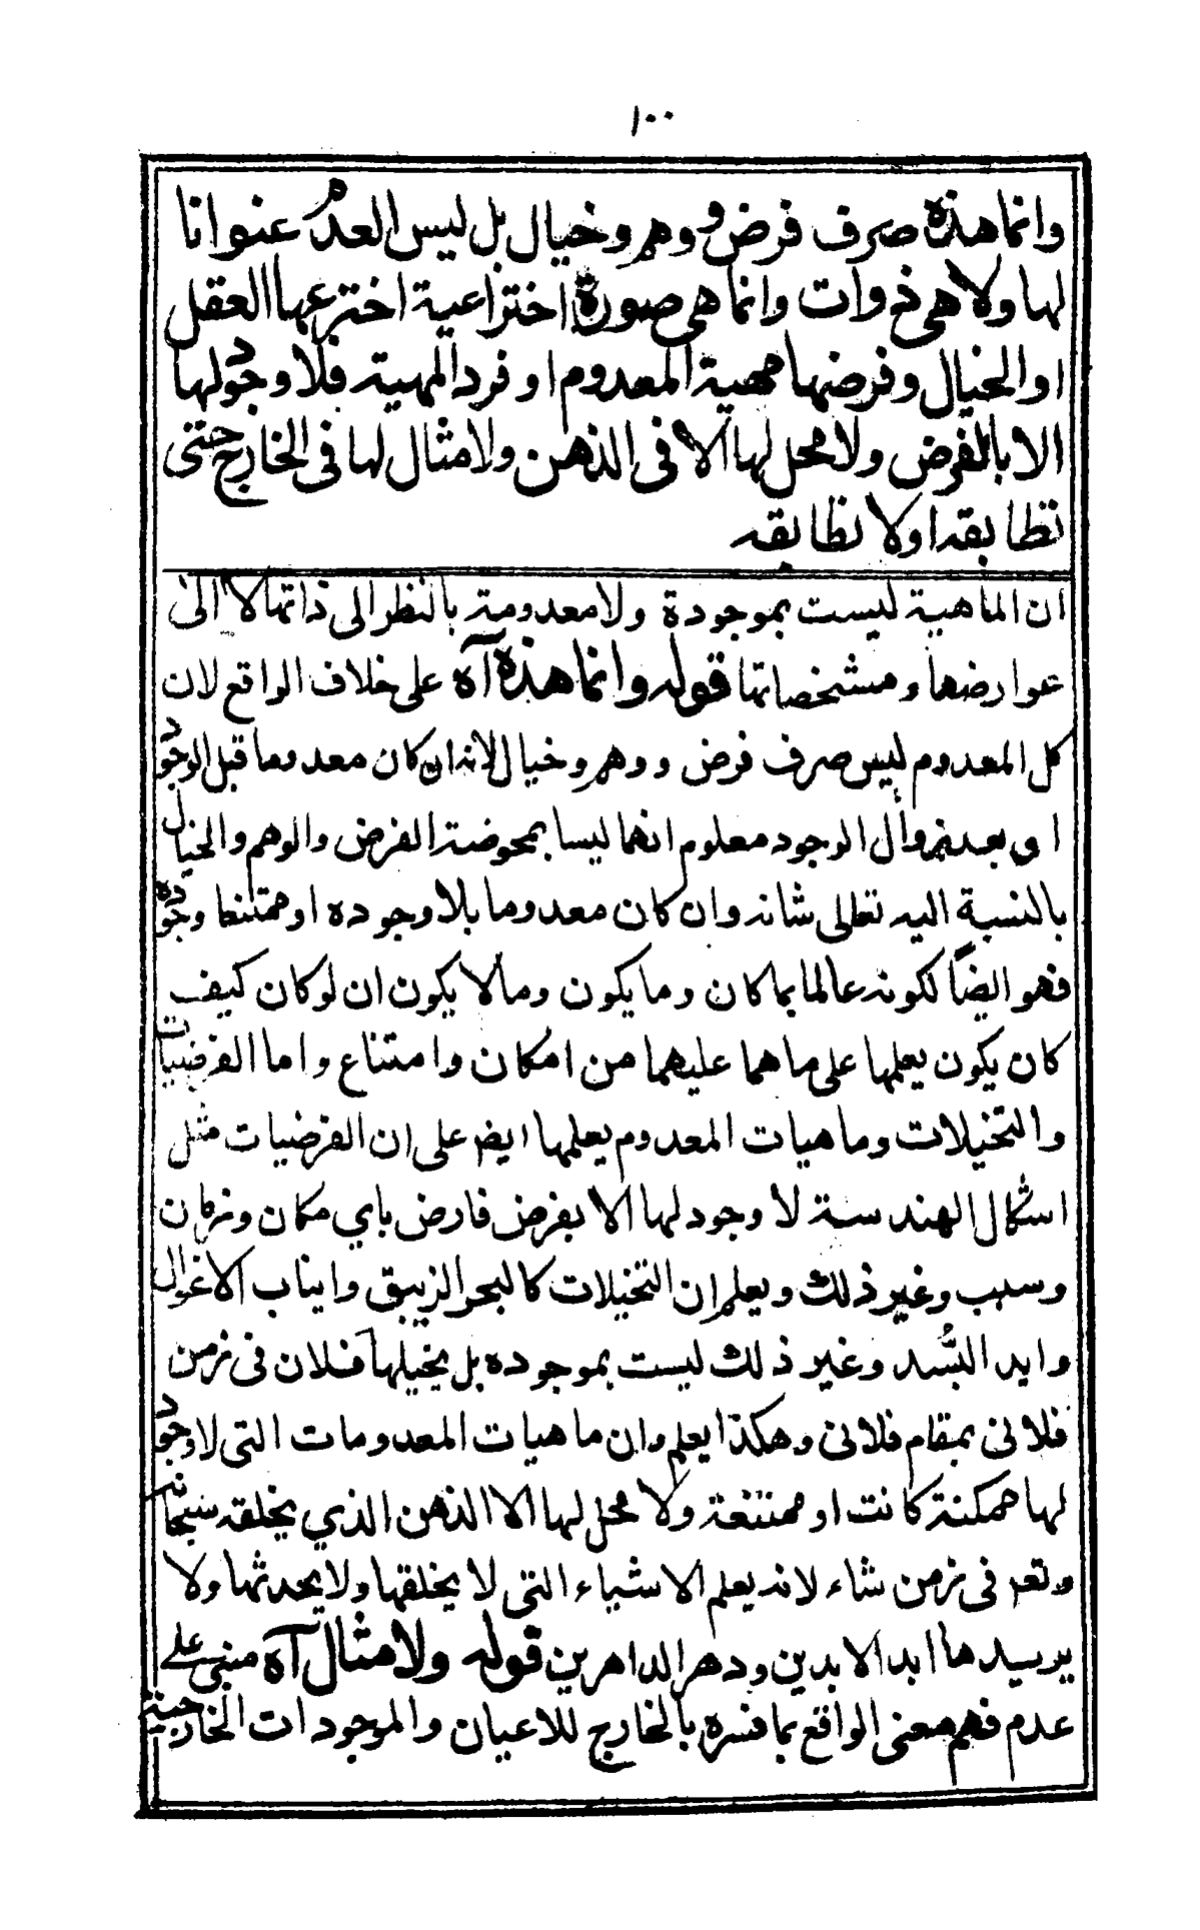 ١٠٠
وانما هذه صرف فرض ووهم وخيال بل ليس العدم عنوانا
لها ولا هى ذوات وانما هى صورة اختراعية اخترعها العقل
او الخيال وفرضها مهية المعدوم او فرد المهية فلا وجود لها
الا بالفرض ولا محل لها الا فى الذهن ولا مثال لها فى الخارج حتى
تطابقه او لا تطابقه
ان الماهية ليست بموجودة ولا معدومة بالنظر الى ذاتها لا الى
عوارضها ومشخصاتها قوله وانما هذه آه على خلاف الواقع لان
كل المعدوم ليس صرف فرض ووهم وخيال لانه ان كان معدوما قبل الوجود
او بعد زوال الوجود معلوم انهما ليسا بمحوضة الفرض والوهم والخيال
بالنسبة اليه تعالى شانه وان كان معدوما بلا وجوده او ممتنعا وجوده
فهو ايضًا لكونه عالما بما كان وما يكون وما لا يكون ان لو كان كيف
كان يكون يعلمها على ما هما عليهما من امكان وامتناع واما الفرضيات
والتخيلات وماهيات المعدوم يعلمها ايض على ان الفرضيات مثل
اشكال الهندسة لا وجود لها الا بفرض فارض باي مكان وزمان
وسبب وغير ذلك ويعلم ان التخيلات كالبحر الزيبق وانياب الاغوال
وايد النسد وغير ذلك ليست بموجوده بل يخيلها فلان فى زمن
فلانى بمقام فلانى وهكذا يعلم وان ماهيات المعدومات التى لا وجود
لها ممكنة كانت او ممتنعة ولا محل لها الا الذهن الذي يخلقه سبحانه
وتعم فى زمن شاء لانه يعلم الاشياء التى لا يخلقها ولا يحدثها ولا
يريدها ابد الابدين ودهر الداهرين قوله ولا مثال آه مبنى على
عدم فهم معنى الواقع بما فسره بالخارج للاعيان والموجودات الخارجية